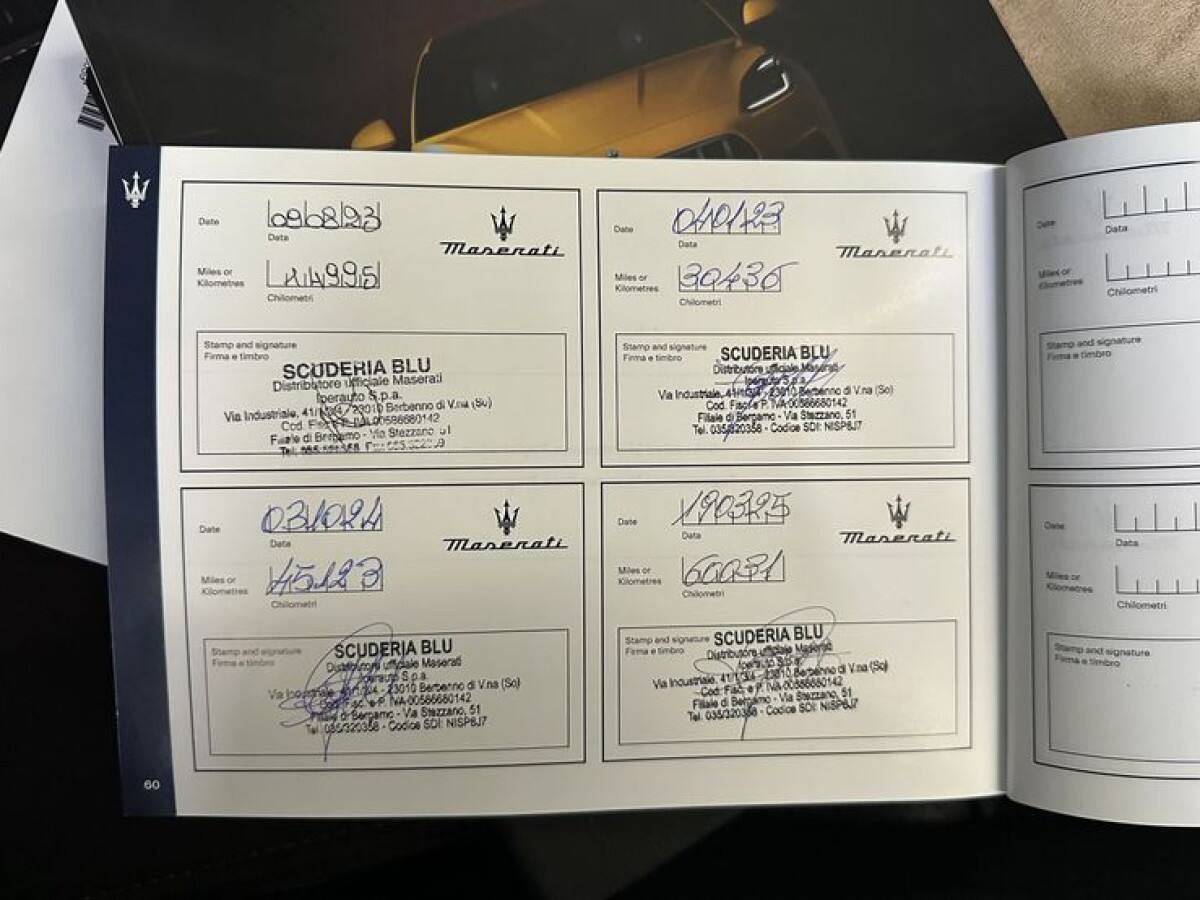 Date
090823
Data
Maserati
Miles or
Kilometres
14995
Chilometri
Stamp and signature
Firma e timbro
SCUDERIA BLU
Distributore ufficiale Maserati
Iperauto S.p.a.
Via Industriale, 41/1/3/4 - 23010 Berbenno di V.na (So)
Cod. Fisc. e P. IVA 00586680142
Filiale di Bergamo - Via Stezzano, 51
Tel.
Date
040123
Data
Maserati
Miles or
Kilometres
30430
Chilometri
Stamp and signature
Firma e timbro
SCUDERIA BLU
Distributore ufficiale Maserati
Iperauto S.p.a.
Via Industriale, 41/1/3/4 - 23010 Berbenno di V.na (So)
Cod. Fisc. e P. IVA 00586680142
Filiale di Bergamo - Via Stezzano, 51
Tel. 035/320358 - Codice SDI: NISP8J7
Date
031024
Data
Maserati
Miles or
Kilometres
45123
Chilometri
Stamp and signature
Firma e timbro
SCUDERIA BLU
Distributore ufficiale Maserati
Iperauto S.p.a.
Via Industriale, 41/1/3/4 - 23010 Berbenno di V.na (So)
Cod. Fisc. e P. IVA 00586680142
Filiale di Bergamo - Via Stezzano, 51
Tel. 035/320358 - Codice SDI: NISP8J7
Date
190325
Data
Maserati
Miles or
Kilometres
60031
Chilometri
Stamp and signature
Firma e timbro
SCUDERIA BLU
Distributore ufficiale Maserati
Iperauto S.p.a.
Via Industriale, 41/1/3/4 - 23010 Berbenno di V.na (So)
Cod. Fisc. e P. IVA 00586680142
Filiale di Bergamo - Via Stezzano, 51
Tel. 035/320358 - Codice SDI: NISP8J7
60
Date
Data
Miles or
Kilometres
Chilometri
Stamp and signature
Firma e timbro
Date
Data
Miles or
Kilometres
Chilometri
Stamp and signature
Firma e timbro